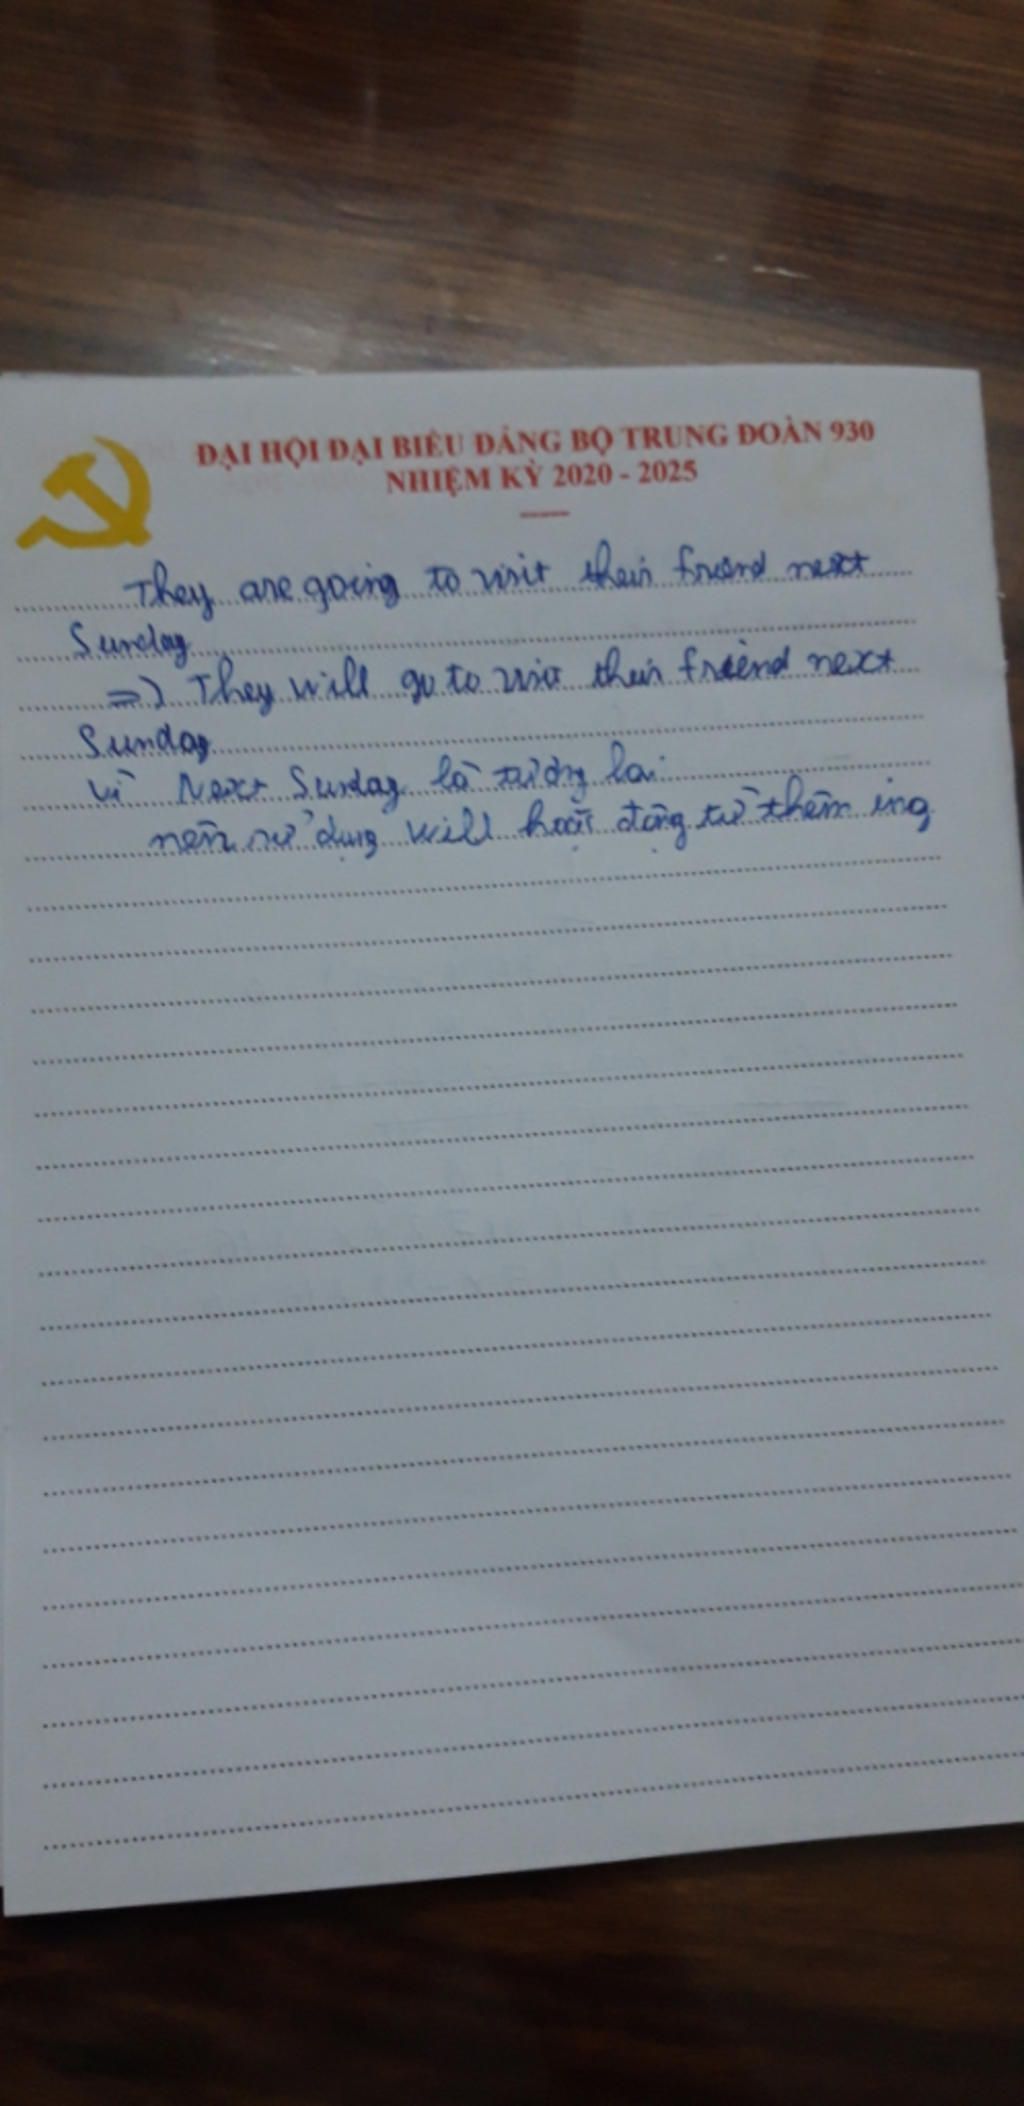 ĐẠI HỘI ĐẠI BIỂU ĐẢNG BỘ TRUNG ĐOÀN 930
NHIỆM KỲ 2020 - 2025
They are going to visit their friend next
Sunday
=> They will go to visit their friend next
Sunday
Vì Next Sunday là tương lai
nên sử dụng will hoặc động từ thêm ing